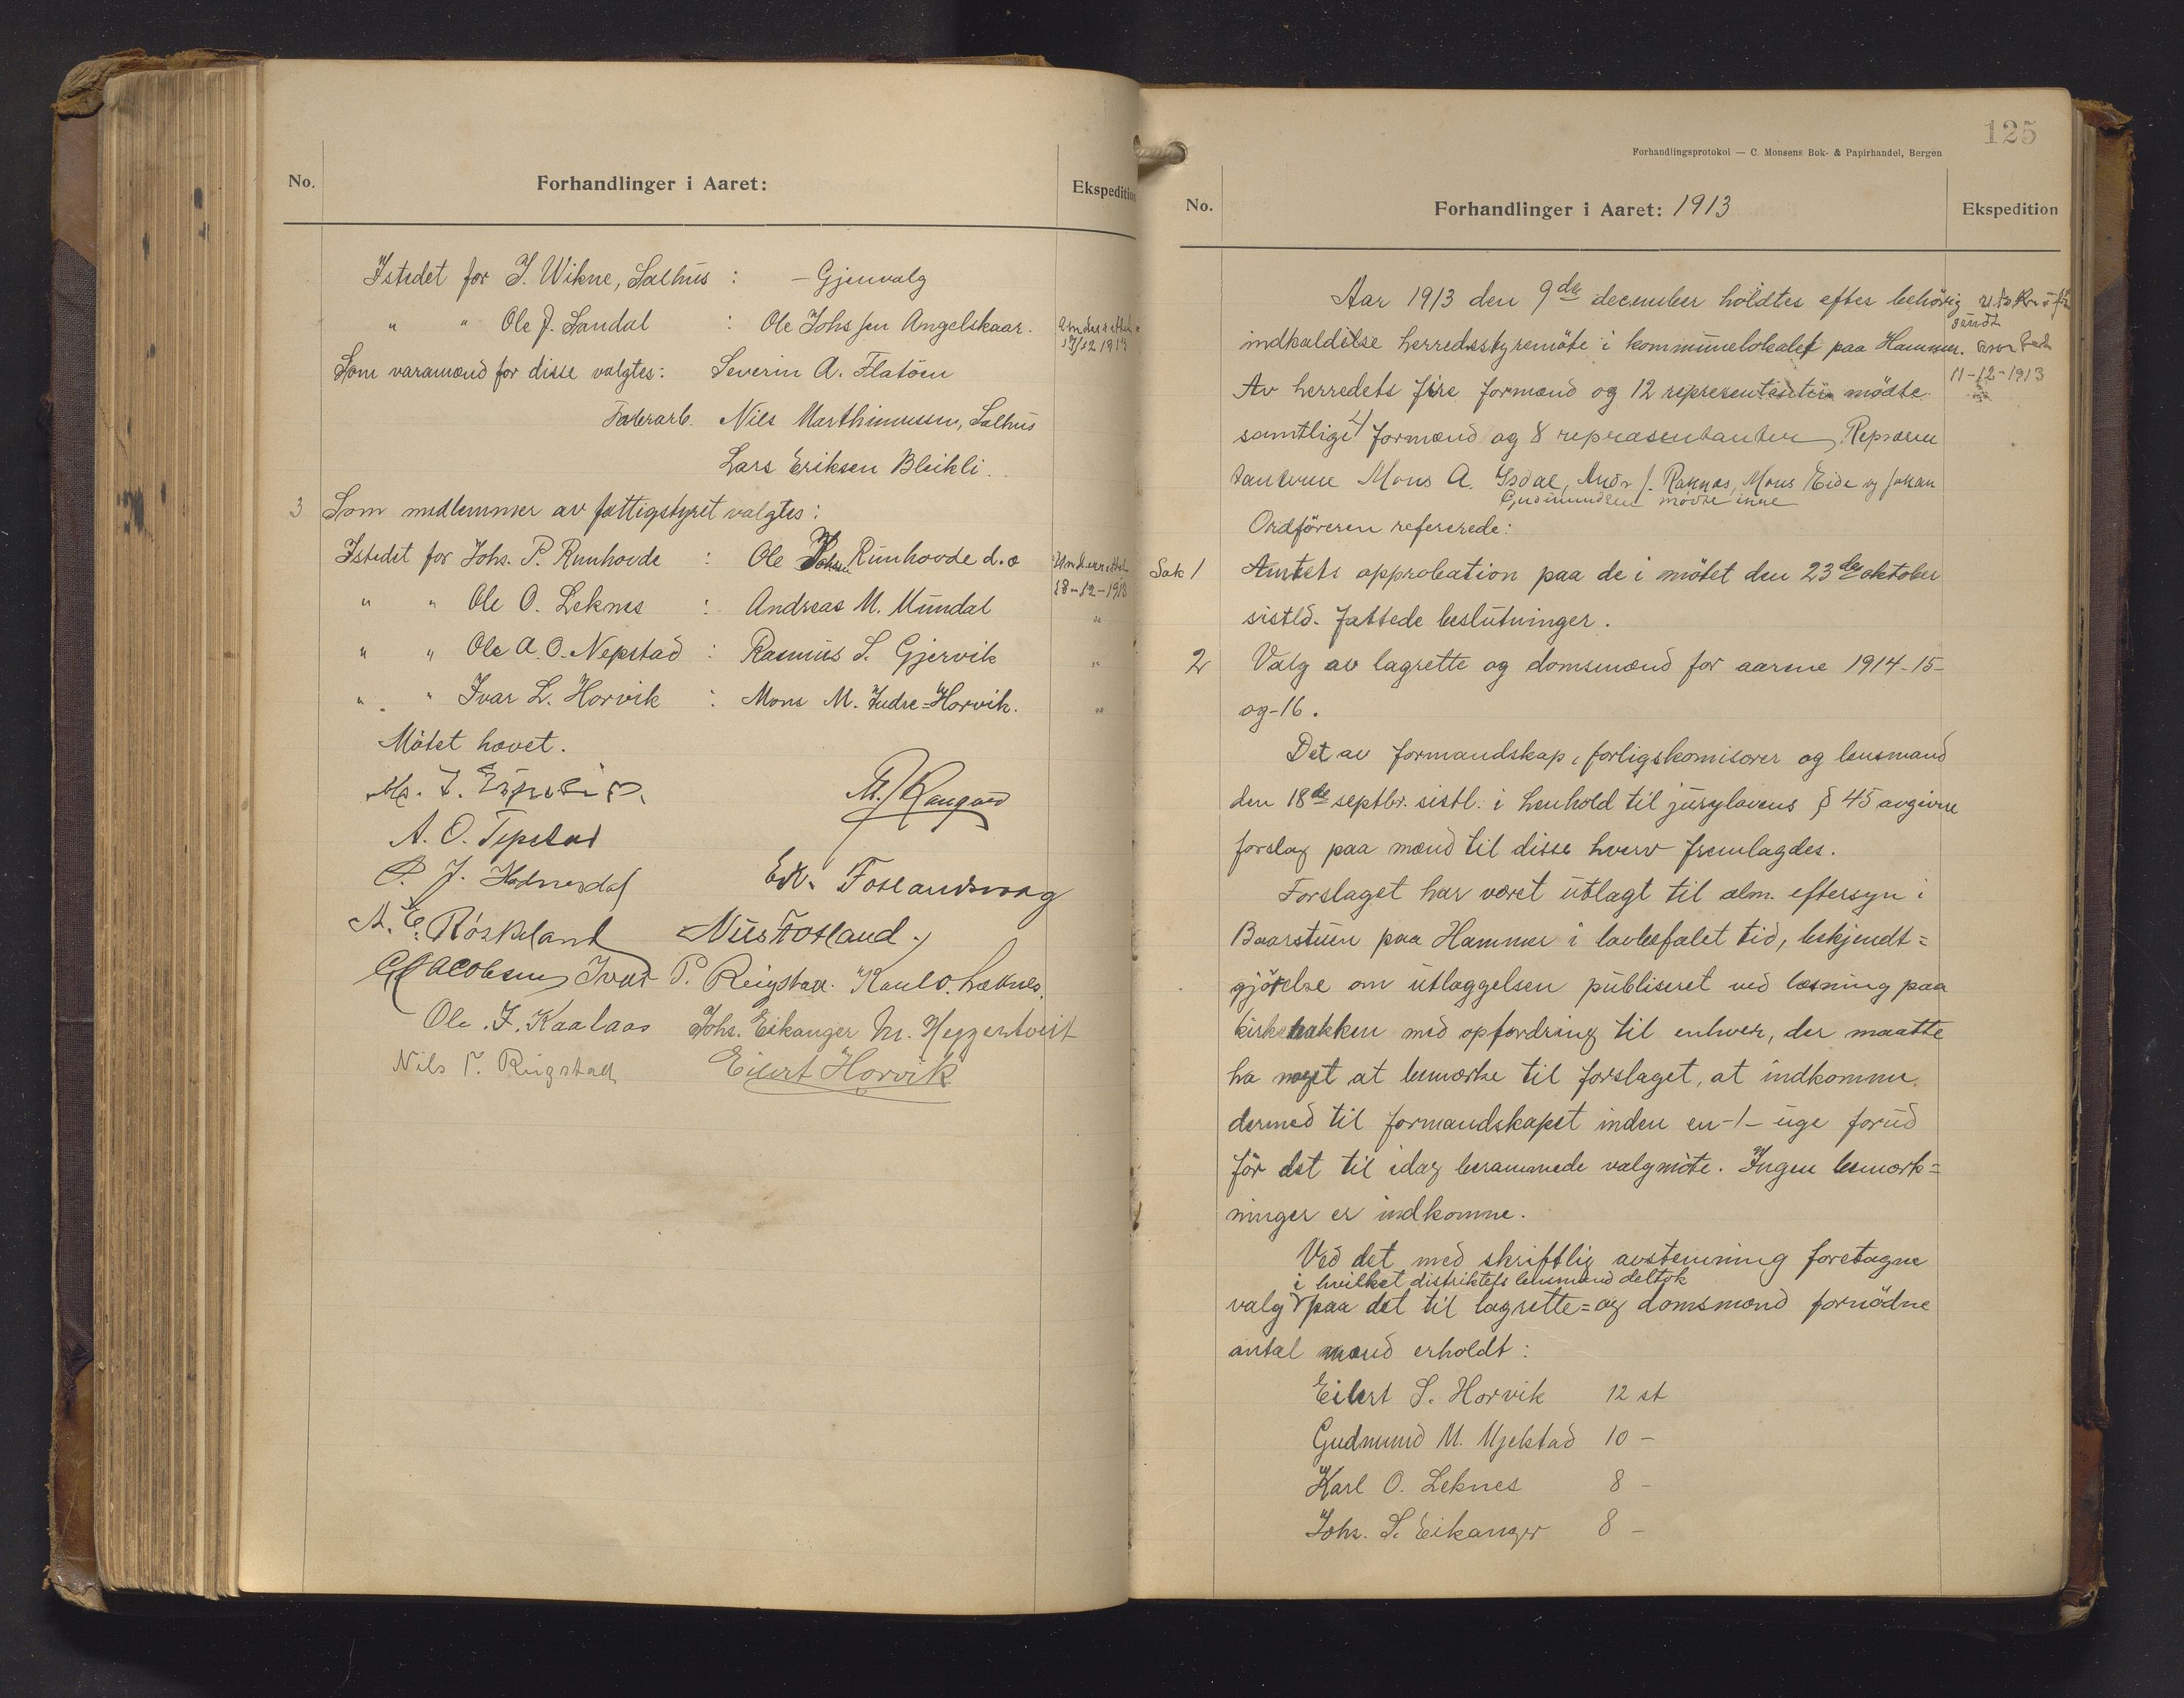 No.
Forhandlinger i Aaret:
Ekspedition
Istedet for J. Wikne, Salhus : — Gjenvalg
" " Ole J. Sandal : Ole Johs sen Angelskaar.
17/12 1913
Som varamænd for disse valgtes: Severin A. Flatöen
Fabrarb. Nils Marthinussen, Salhus
Lars Eriksen Bleikli.
3 Som medlemmer av fattigstyret valgtes:
Istedet for Johs. P. Runhovde : Ole Johsen Runhovde d.æ
18-12-1913
" " Ole O. Leknes : Andreas M. Mundal "
" " Ole A. O. Nepstad : Rasmus S. Gjervik "
" " Ivar L. Horvik : Mons M. Indre=Horvik. "
Mötet hævet.
A. O. Tepstad
Edv. Foslandsvaag
A. E. Röskeland Nils Fosland.
C Jacobsen Ivar P. Reigstad. Karl O. Leknes.
Ole. J. Kaalaas Johs. Eikanger M. Heggertveit
Nils P. Reigstad Eilert Horvik
125
Forhandlingsprotokol — C. Monsens Bok- & Papirhandel, Bergen
No.
Forhandlinger i Aaret: 1913
Ekspedition
Aar 1913 den 9de december holdtes efter behörig
indkaldelse herredsstyremöte i kommunelokalet paa Hammer.
11-12-1913
Av herredets fire formænd og 12 representanter mödte
samtlige 4 formænd og 8 repræsentanter. Repræsen
tanterne Mons A. Isdal, Andr J. Raknes, Mons Eide og Johan
Gudmundsen mödte ikke
Ordföreren refererede:
Sak 1 Amtets approbation paa de i mötet den 23de oktober
sistld. fattede beslutninger.
2 Valg av lagrette og domsmænd for aarene 1914-15-
og-16.
Det av formandskap, forligskomisærer og lensmand
den 18de septbr. sistl. i henhold til jurylovens § 45 avgivne
forslag paa mænd til disse hverv fremlagdes.
Forslaget har været utlagt til alm. eftersyn i
Baarstuen paa Hammer i lovbefalet tid, bekjendt=
gjörelse om utlæggelsen publiseret ved læsning paa
kirkebakken med opfordring til enhver, der maatte
ha noget at bemærke til forslaget, at indkomme
dermed til formandskapet inden en -1- uge forud
för det til idag berammede valgmöte. Ingen bemærk=
ninger er indkomne.
Ved det med skriftlig avstemning foretagne
i hvilket distriktets lensmand deltok
valg paa det til lagrette= og domsmænd fornödne
antal mænd erholdt:
Eilert S. Horvik 12 st
Gudmund M. Mjelstad 10 —
Karl O. Leknes 8 —
Johs. S. Eikanger 8 —